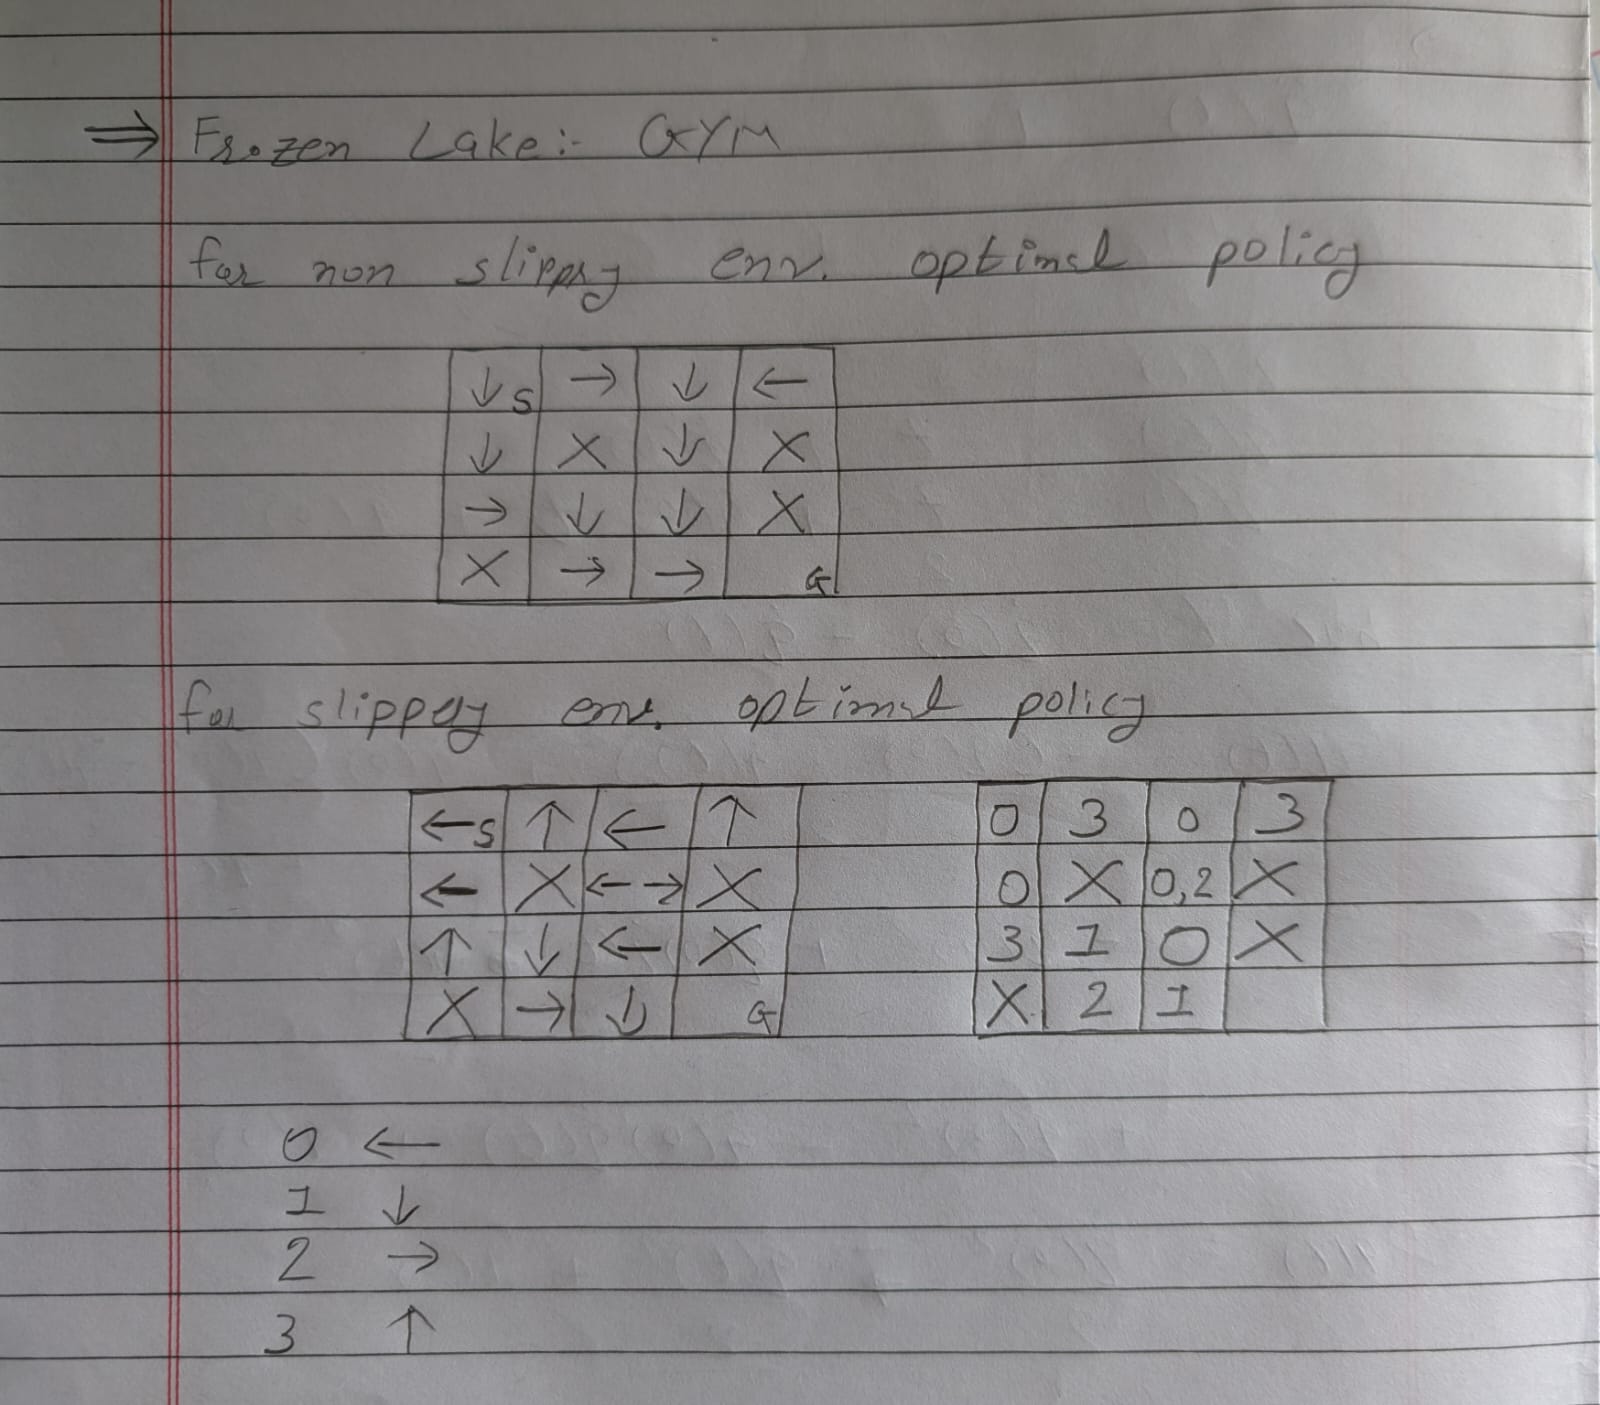 ⇒ Frozen Lake:- GYM
for non slippry env. optimal policy
↓ S → ↓ ←
↓ X ↓ X
→ ↓ ↓ X
X → → G
for slippery env. optimal policy
← S ↑ ← ↑ 0 3 0 3
← X ←→ X 0 X 0,2 X
↑ ↓ ← X 3 1 0 X
X → ↓ G X 2 1
0 ←
1 ↓
2 →
3 ↑